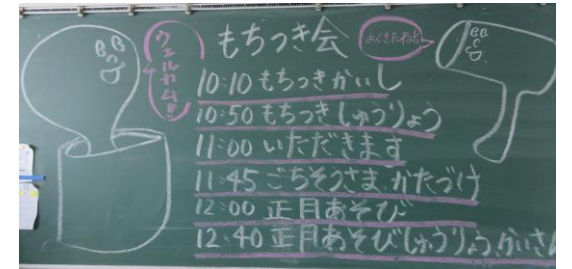 ウェルカム!!
もちつき会
よくきたね
10:10 もちつきかいし
10:50 もちつきしゅうりょう
11:00 いただきます
11:45 ごちそうさま、かたづけ
12:00 正月あそび
12:40 正月あそびしゅうりょう、かいさん